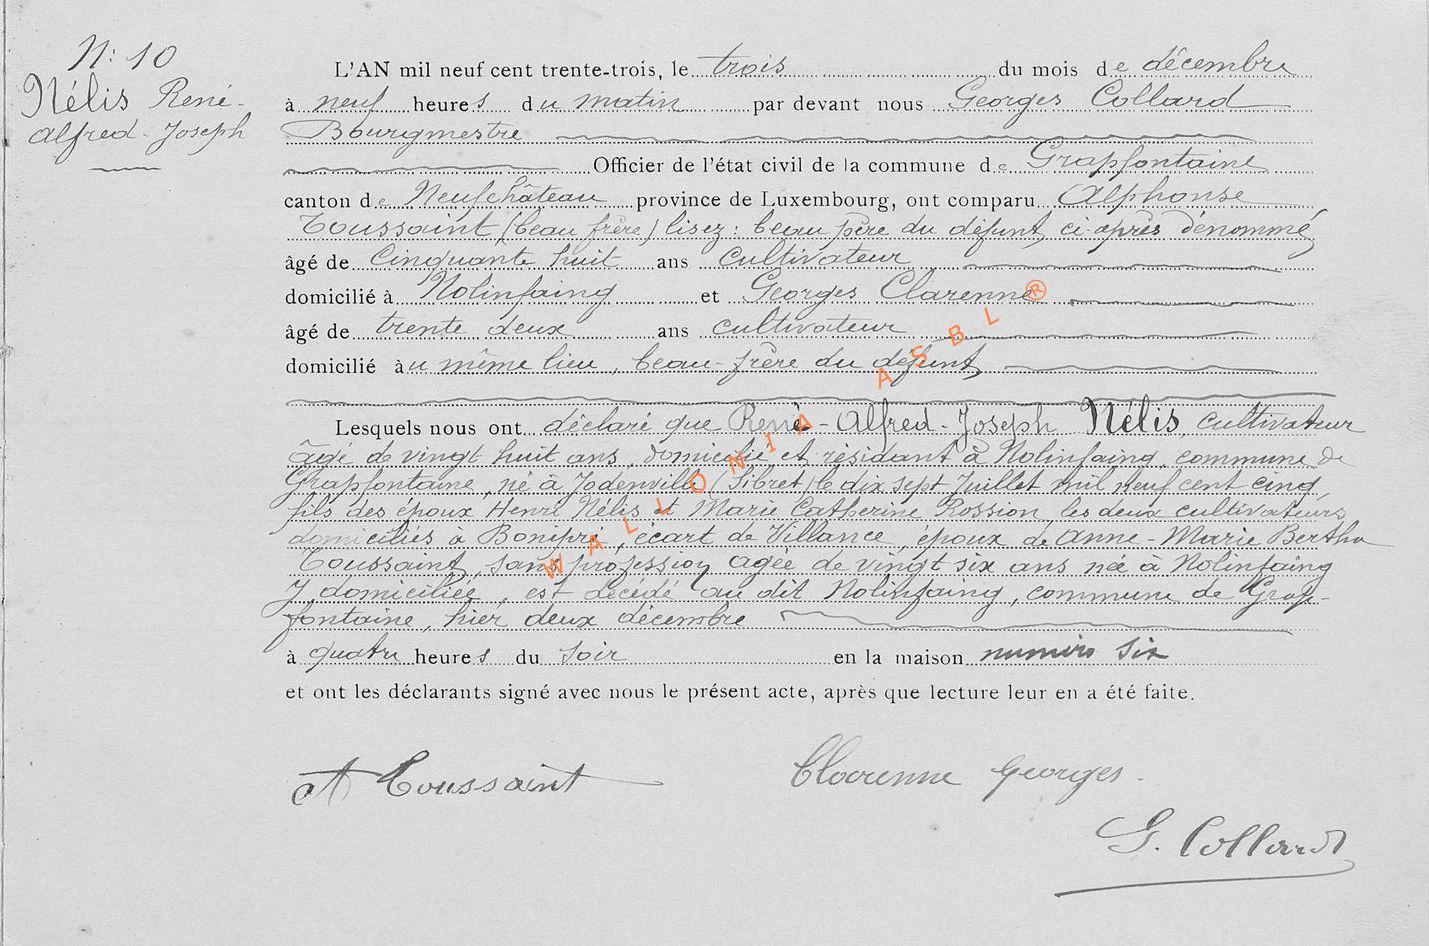 N: 10
Nélis René-
Alfred-Joseph
L'AN mil neuf cent trente-trois, le trois du mois de décembre
à neuf heures du matin par devant nous Georges Collard
Bourgmestre
Officier de l'état civil de la commune de Grapfontaine
canton de Neufchâteau province de Luxembourg, ont comparu Alphonse
Toussaint, (beau frère) lisez : beau père du défunt, ci-après dénommé,
âgé de cinquante huit ans cultivateur
domicilié à Nolinfaing et Georges Clarenne
âgé de trente deux ans cultivateur
domicilié au même lieu, beau-frère du défunt,
Lesquels nous ont déclaré que René-Alfred-Joseph Nélis, cultivateur
âgé de vingt huit ans, domicilié et résidant à Nolinfaing, commune de
Grapfontaine, né à Jodenville (Sibret) le dix sept Juillet mil neuf cent cinq,
fils des époux Henri Nélis et Marie Catherine Rossion, les deux cultivateurs
domiciliés à Bonipré, écart de Villance, époux de Anne-Marie Bertha
Toussaint, sans profession agée de vingt six ans née à Nolinfaing
y domiciliée, est décédé au dit Nolinfaing, commune de Grap-
fontaine, hier deux décembre
à quatre heures du soir en la maison numéro six
et ont les déclarants signé avec nous le présent acte, après que lecture leur en a été faite.
A Toussaint
Clarenne Georges.
G. Collard
WALLONIA ASBL ®